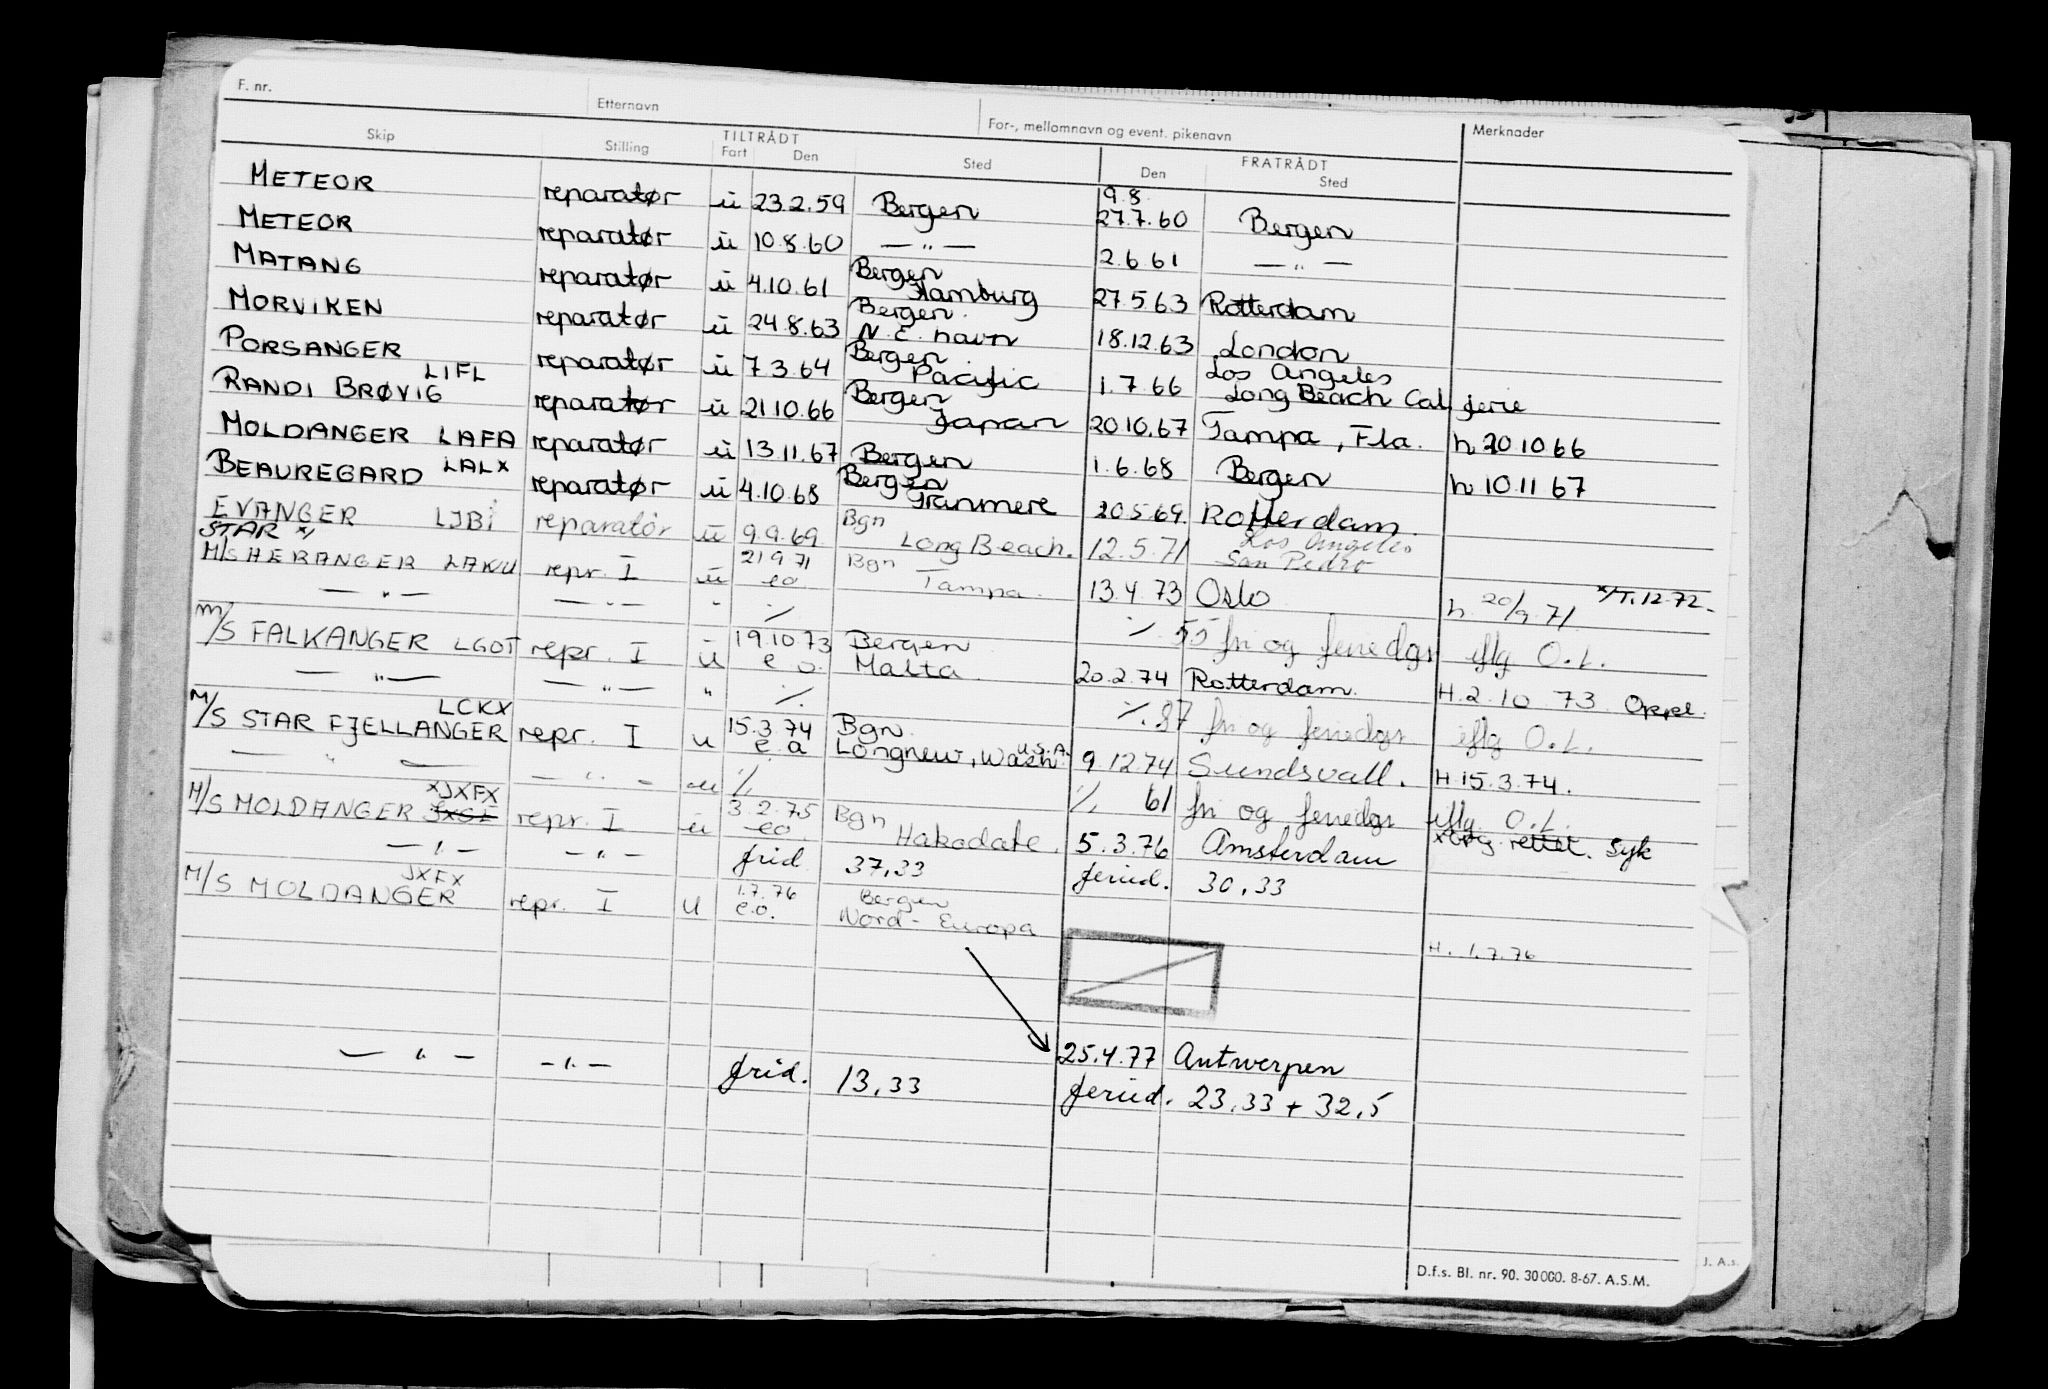 F. nr. Etternavn For-, mellomnavn og event. pikenavn Merknader
Skip Stilling TILTRÅDT Fart Den Sted FRATRÅDT Den Sted
METEOR reparatør u 23.2.59 Bergen 9.8. 27.7.60 Bergen
METEOR reparatør u 10.8.60 — " — 2.6.61 — " —
MATANG reparatør u 4.10.61 Bergen Hamburg 27.5.63 Rotterdam
MORVIKEN reparatør u 24.8.63 Bergen N.E. havn 18.12.63 London
PORSANGER reparatør u 7.3.64 Bergen Pacific 1.7.66 Los Angeles Long Beach Cal. ferie
RANDI BRØVIG LIFL reparatør u 21.10.66 Bergen Japan 20.10.67 Tampa, Fla. h 20.10.66
MOLDANGER LAFA reparatør u 13.11.67 Bergen 1.6.68 Bergen h 10.11.67
BEAUREGARD LALX reparatør u 4.10.68 Bergen Granmere 20.5.69. Rotterdam
EVANGER LJBI reparatör u 9.9.69 Bgn Long Beach. 12.5.71 Los Angeles San Pedro
STAR x/
M/S HERANGER LAKU repr. I u 21.9.71 eo Bgn Tampa. 13.4.73 Oslo h. 20/9.71 x/T.12.72.
— " — — " — " % %. 55 fri og feriedgr iflg O.L.
M/S FALKANGER LGOT repr. I u 19.10.73 e.o. Bergen Malta. 20.2.74 Rotterdam. H.2.10 73. Oppl.
— " — — " — " %. %. 87 fri og feriedgr iflg O.L.
M/S STAR FJELLANGER LCKX repr. I u 15.3.74 e.a Bgn. Longview, Wash. U.S.A. 9.12.74 Sundsvall. H.15.3.74.
— " — — " — u %. %. 61 fri og feriedgr iflg O.L.
M/S MOLDANGER xJXFX repr. I u 3.2.75 eo Bgn Hakodate. 5.3.76 Amsterdam rettet. Syk
— " — — " — frid 37,33 feried. 30,33
M/S MOLDANGER JXFX repr. I u 1.7.76 e.o. Bergen Nord-Europa H. 1.7.76
25.4.77 Antwerpen
— " — — " — frid. 13,33 feried. 23,33 + 32,5
D.f.s. Bl. nr. 90. 30000. 8-67. A.S.M.
J. A.s.